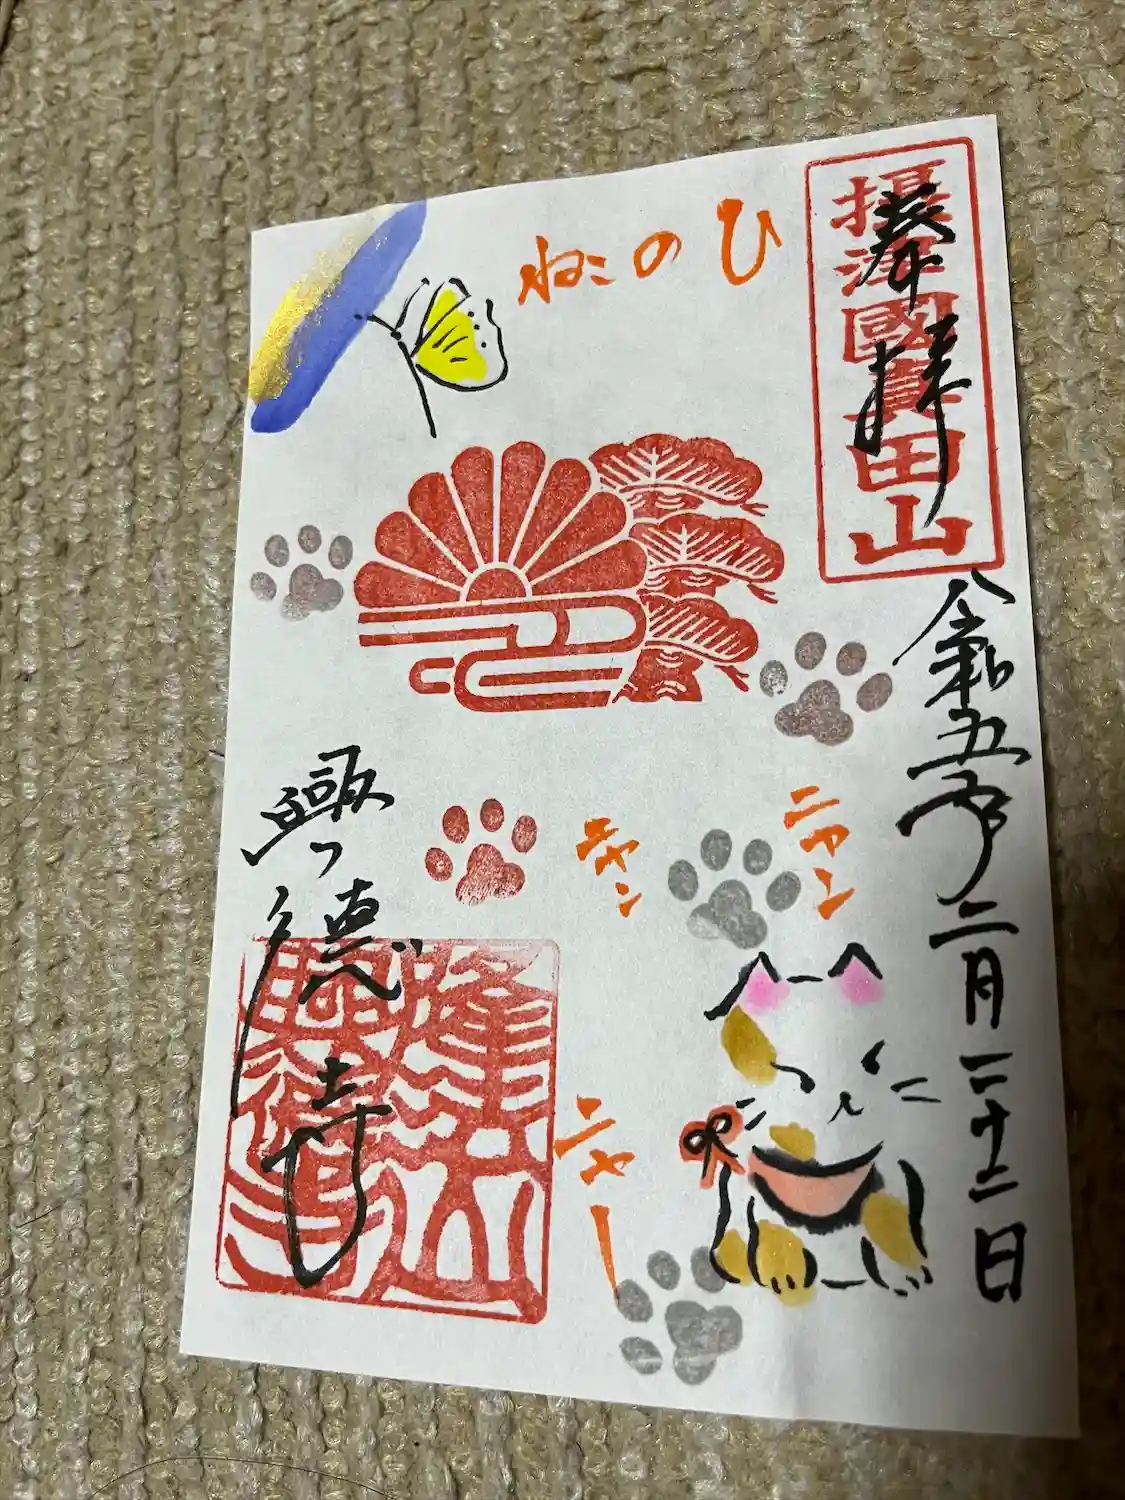 摂津國真田山
奉拝
令和五年二月二十二日
ねこのひ
ニャン
ニャン
ニャー
興徳寺
隆興山
興徳寺